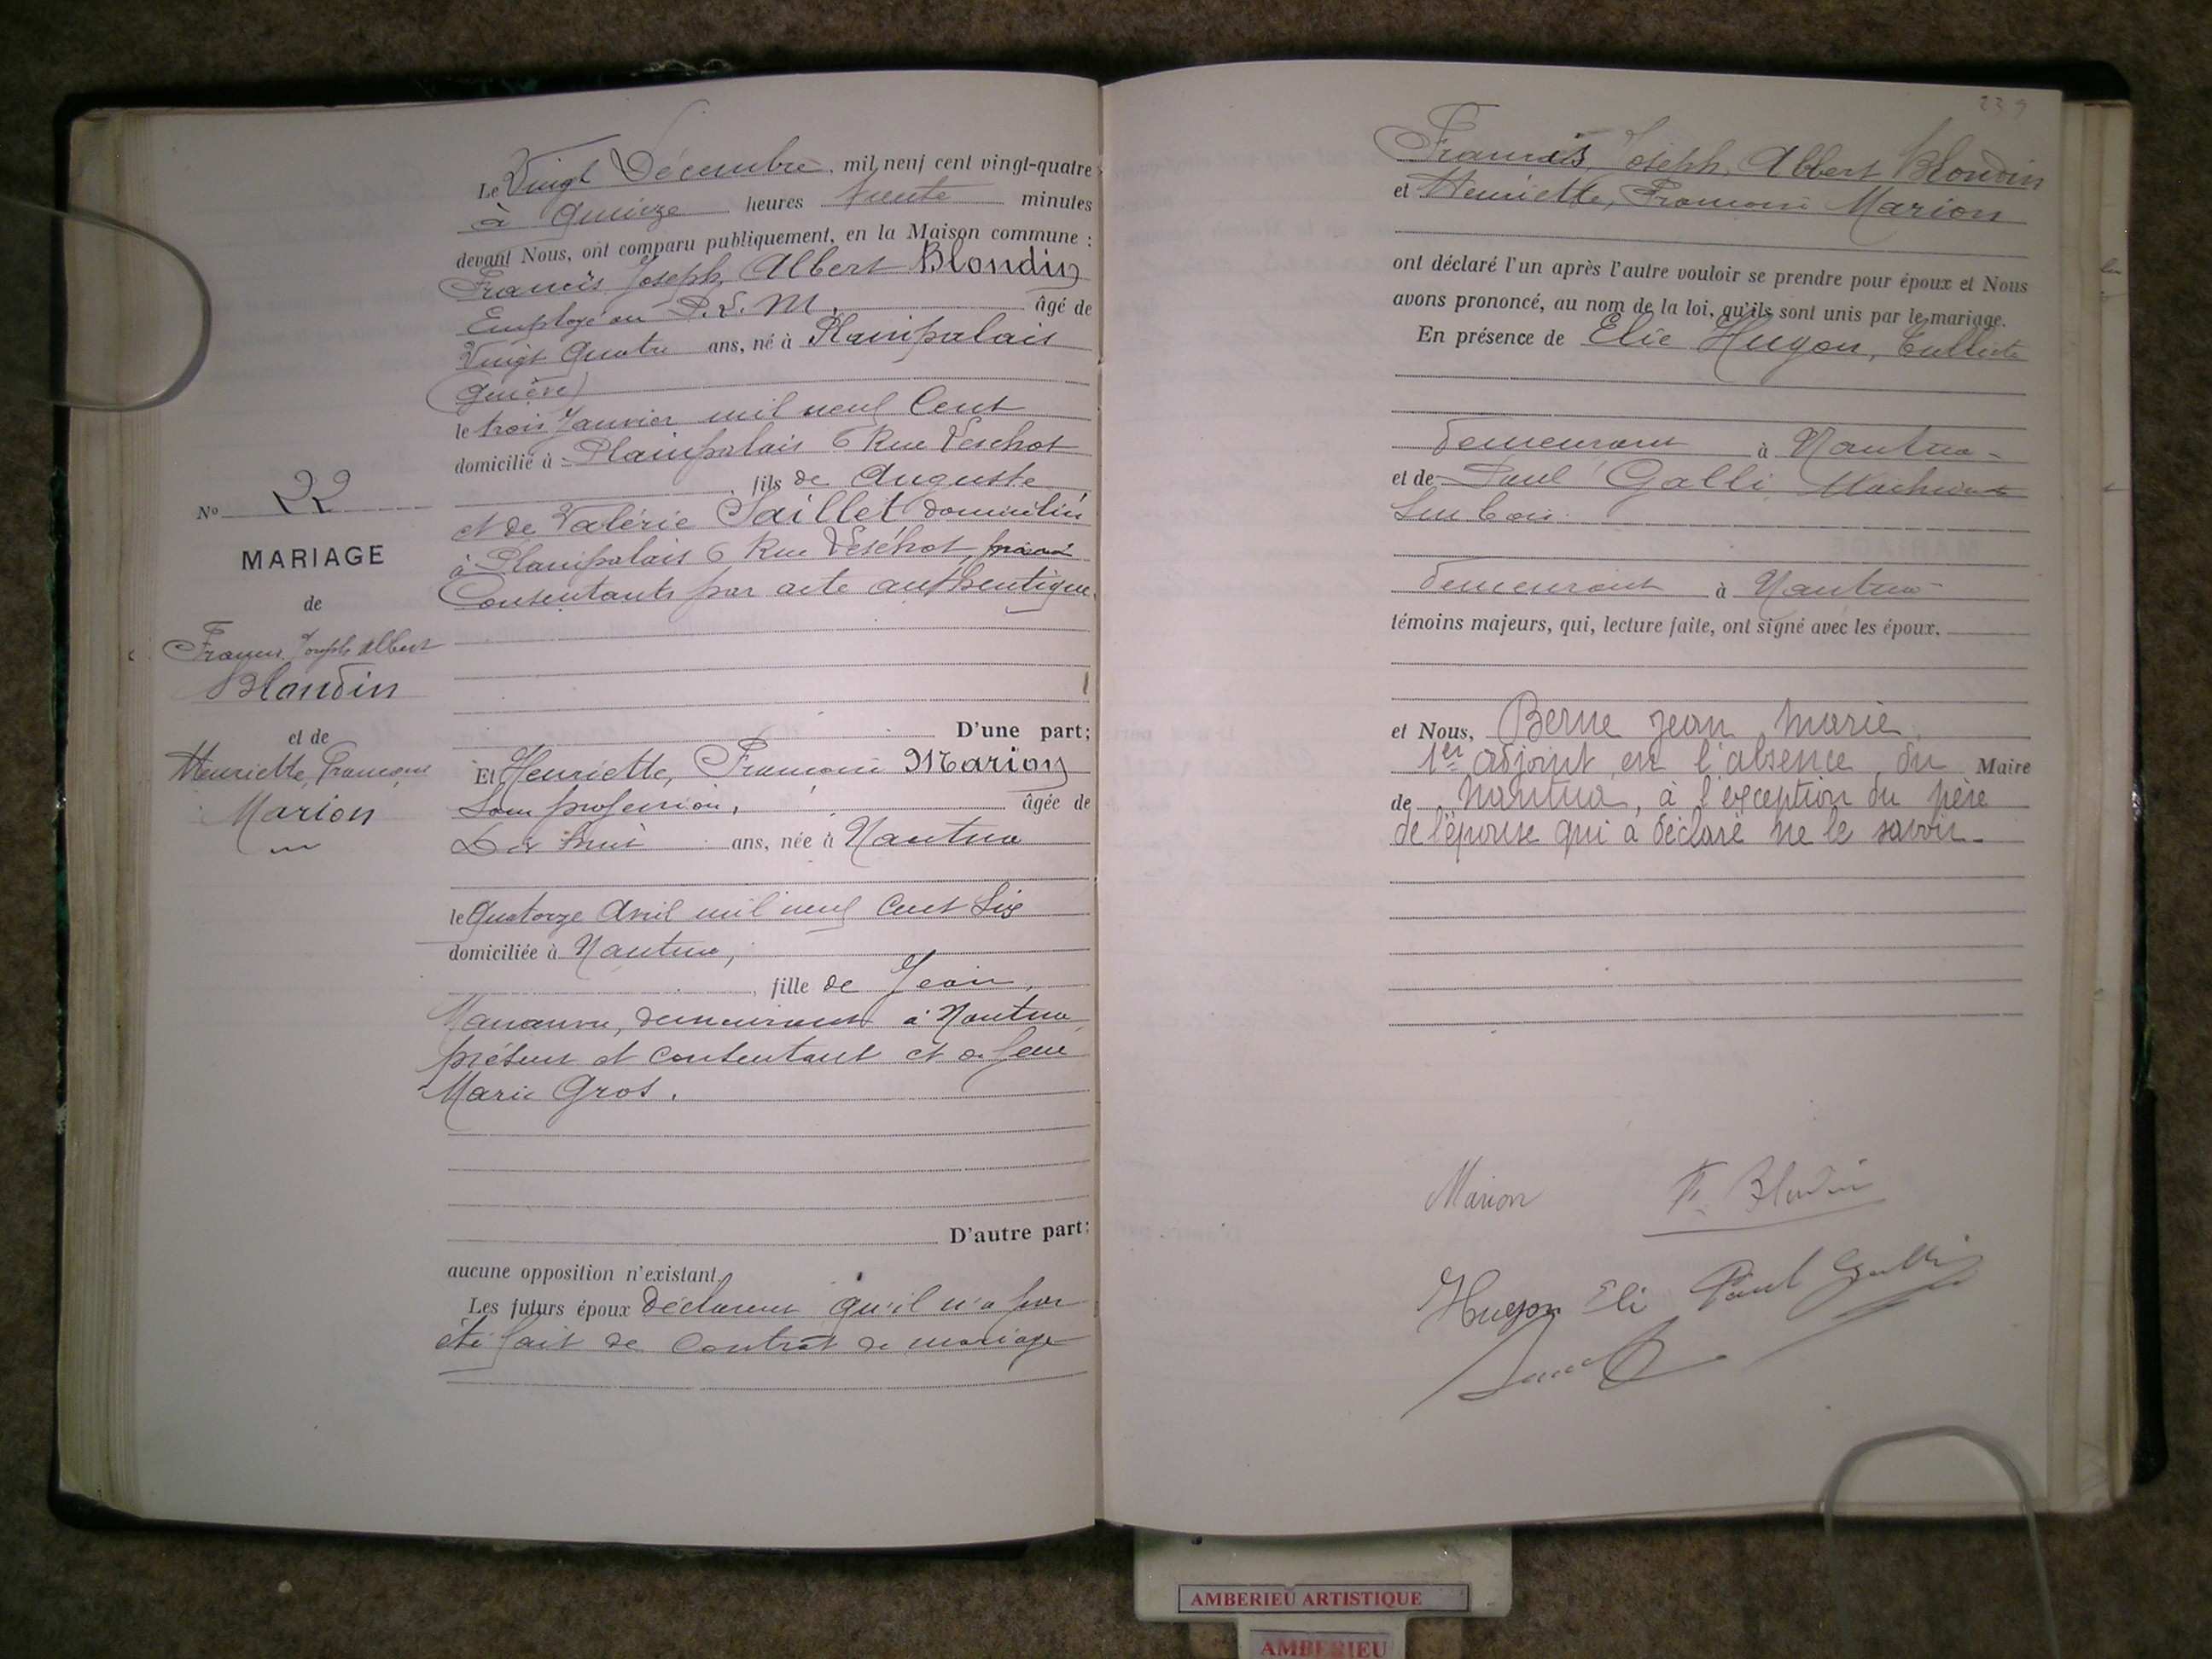 Le Vingt Décembre, mil neuf cent vingt-quatre
à Quinze heures trente minutes
devant Nous, ont comparu publiquement, en la Maison commune :
Francis Joseph Albert Blondin
Employé au P. L. M. âgé de
Vingt Quatre ans, né à Plainpalais
(Genève)
le trois Janvier mil neuf Cent
domicilié à Plainpalais 6 Rue Veschot
fils de Auguste
et de Valérie Saillet domiciliés
à Plainpalais 6 Rue Veschot,
Consentants par acte authentique.
No 22
MARIAGE
de
Francis Joseph Albert
Blondin
et de
Henriette, Françoise
Marion
D'une part;
Et Henriette, Françoise Marion
Sans profession, âgée de
Dix huit ans, née à Nantua
le Quatorze Avril mil neuf Cent Six
domiciliée à Nantua,
fille de Jean,
Manœuvre, demeurant à Nantua
présent et consentant et de feue
Marie Gros.
D'autre part;
aucune opposition n'existant.
Les futurs époux déclarent qu'il n'a pas
été fait de Contrat de mariage
239
Francis, Joseph, Albert Blondin
et Henriette, Françoise Marion
ont déclaré l'un après l'autre vouloir se prendre pour époux et Nous
avons prononcé, au nom de la loi, qu'ils sont unis par le mariage.
En présence de Elie Hugon,
demeurant à Nantua
et de Paul Galli,
demeurant à Nantua
témoins majeurs, qui, lecture faite, ont signé avec les époux.
et Nous, Berne Jean Marie
1er adjoint en l'absence du Maire
de Nantua, à l'exception du père
de l'épouse qui a déclaré ne le savoir.
Marion F. Blondin
Hugon Eli Paul Galli
AMBERIEU ARTISTIQUE
AMBERIEU